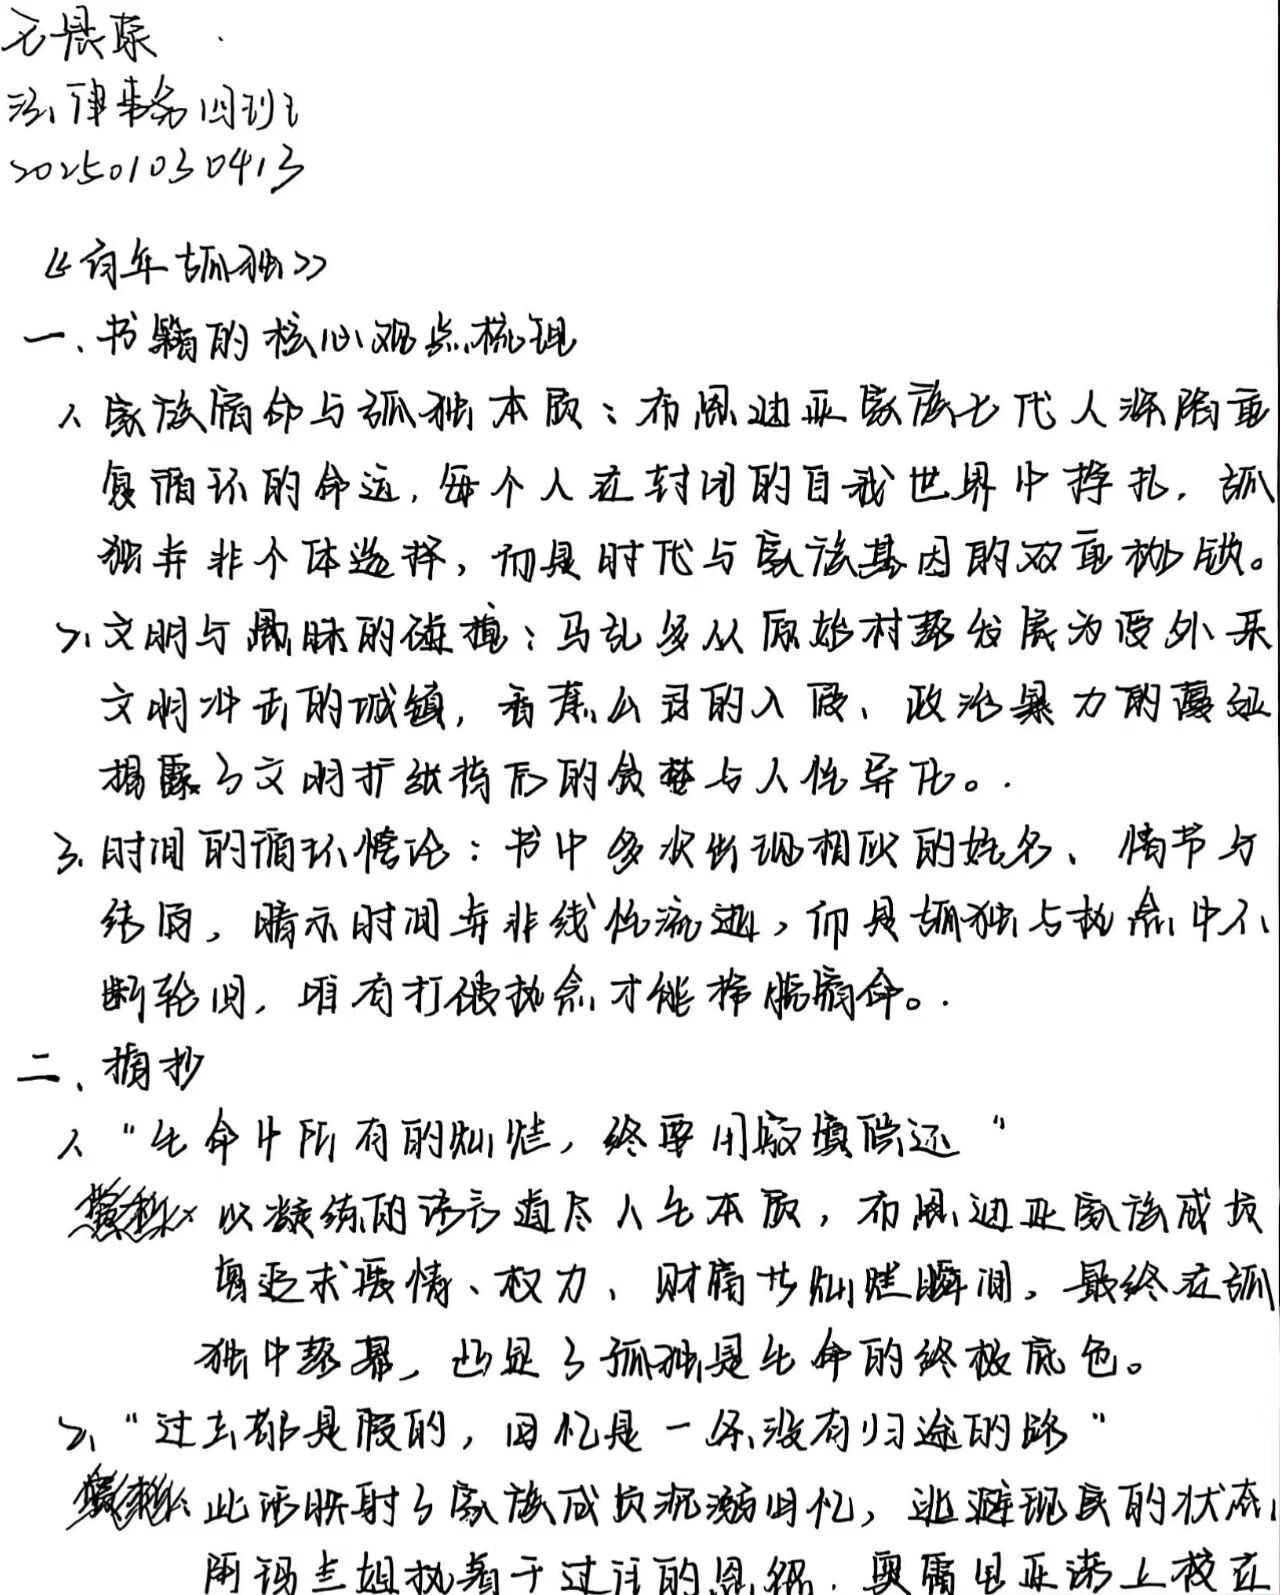 法律事务四班
202501030413
《百年孤独》
一、书籍的核心观点梳理
1. 家族宿命与孤独本质：布恩迪亚家族七代人深陷重
复循环的命运，每个人在封闭的自我世界中挣扎，孤
独并非个体选择，而是时代与家族基因的双重枷锁。
2. 文明与愚昧的碰撞：马孔多从原始村落发展为受外来
文明冲击的城镇，香蕉公司的入侵、政治暴力的蔓延
揭露了文明扩张背后的贪婪与人性异化。
3. 时间的循环悖论：书中多次出现相似的姓名、情节与
结局，暗示时间并非线性流逝，而是孤独与执念中不
断轮回，唯有打破执念才能挣脱宿命。
二、摘抄
1. "生命中所有的灿烂，终要用寂寞偿还"
以凝练的语言道尽人生本质，布恩迪亚家族成员
曾追求爱情、权力、财富等灿烂瞬间，最终在孤
独中落幕，凸显了孤独是生命的终极底色。
2. "过去都是假的，回忆是一条没有归途的路"
此话映射了家族成员沉溺回忆，逃避现实的状态，
阿玛兰妲执着于过往的恩怨，奥雷里亚诺上校在